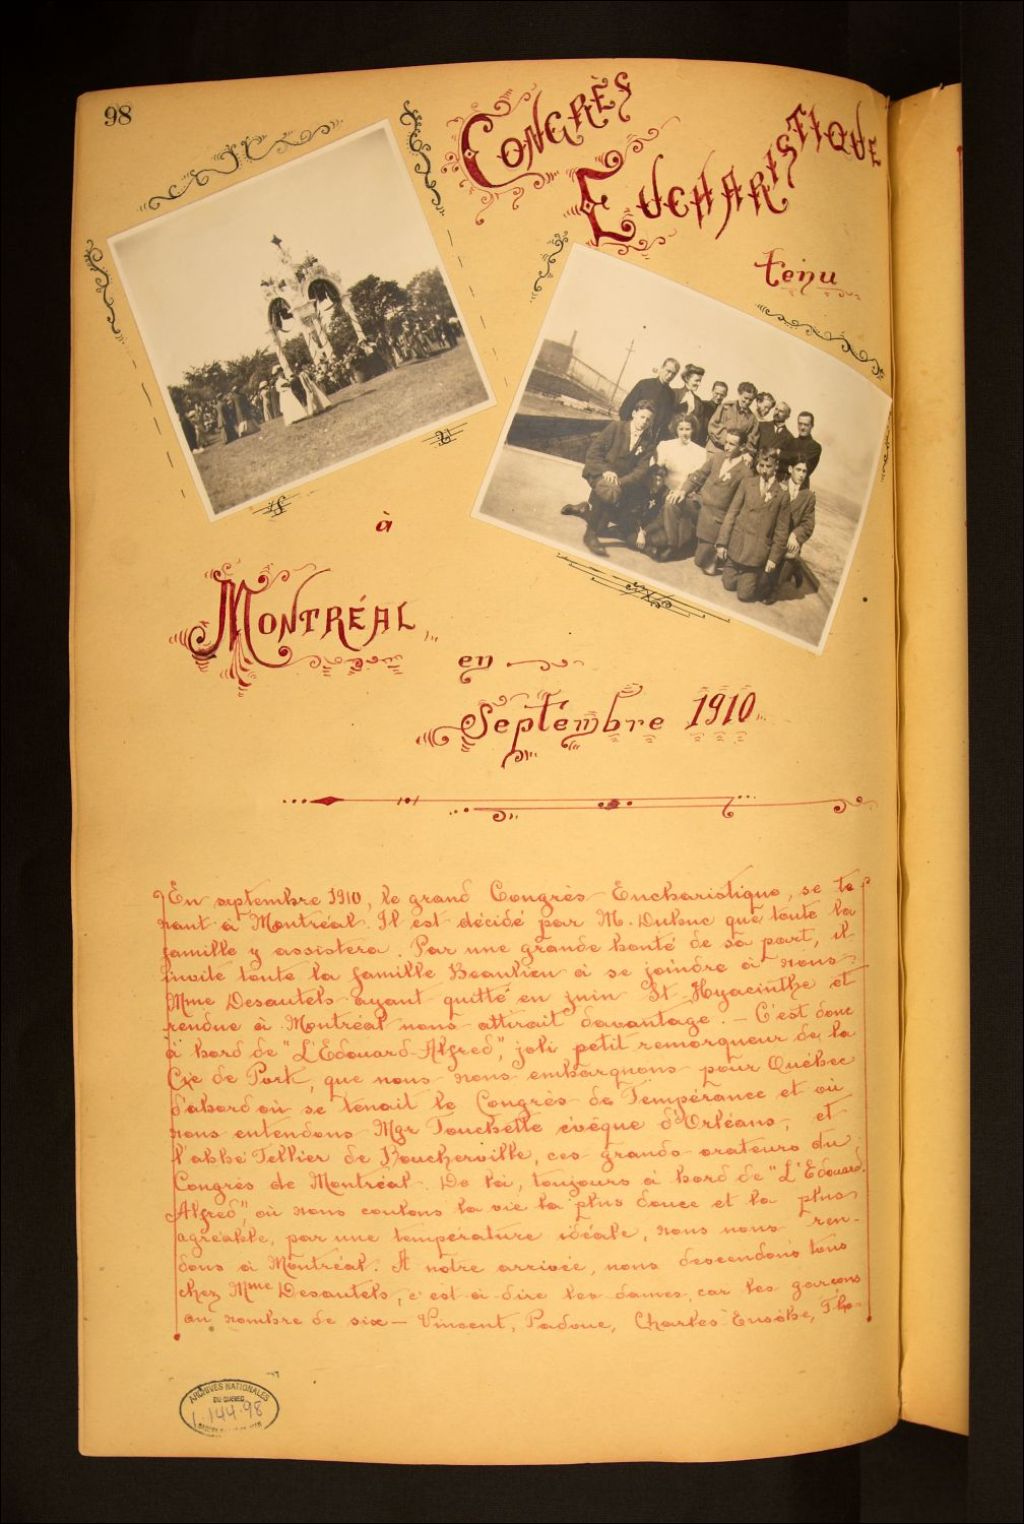 98
Congrès
Eucharistique
tenu
à
Montréal
en
Septembre 1910
En septembre 1910, le grand Congrès Eucharistique, se te
nant à Montréal. Il est décidé par M. Dubuc que toute la
famille y assistera. Par une grande bonté de sa part, il
invite toute la famille Beaulieu à se joindre à nous.
Mme Desautels ayant quitté en juin St-Hyacinthe et
rendue à Montréal nous attirait davantage. — C'est donc
à bord de "L'Edouard-Alfred", joli petit remorqueur de la
Cie de Port, que nous nous embarquons pour Québec
d'abord où se tenait le Congrès de Tempérance et où
nous entendons Mgr Touchette évêque d'Orléans, et
l'abbé Tellier de Boucherville, ces grands orateurs du
Congrès de Montréal. De là, toujours à bord de "L'Edouard-
Alfred", où nous coulons la vie la plus douce et la plus
agréable, par une température idéale, nous nous ren-
dons à Montréal. A notre arrivée, nous descendons tous
chez Mme Desautels, c'est à dire les dames, car les garçons
au nombre de six — Vincent, Padoue, Charles-Eusèbe, Tho-
ARCHIVES NATIONALES
DU QUEBEC
144-98